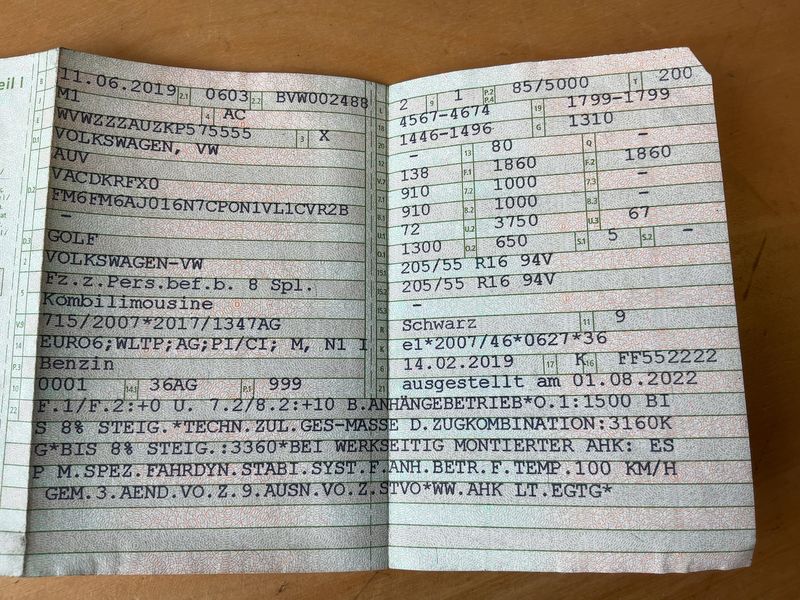 eil I
B 11.06.2019 2.1 0603 2.2 BVW002488
J M1 4 AC
E WVWZZZAUZKP575555 3 X
D.1 VOLKSWAGEN, VW
AUV
D.2 VACDKRFX0
FM6FM6AJ016N7CPON1VL1CVR2B
-
D.3 GOLF
2 VOLKSWAGEN-VW
5 Fz.z.Pers.bef.b. 8 Spl.
Kombilimousine
V.9 715/2007*2017/1347AG
14 EURO6;WLTP;AG;PI/CI; M, N1 I
P.3 Benzin
10 0001 14.1 36AG P.1 999
L 2 9 1 P.2 P.4 85/5000 T 200
18 4567-4674 19 1799-1799
20 1446-1496 G 1310
12 - 13 80 Q -
V.7 138 F.1 1860 F.2 1860
7.1 910 7.2 1000 7.3 -
8.1 910 8.2 1000 8.3 -
U.1 72 U.2 3750 U.3 67
O.1 1300 O.2 650 S.1 5 S.2 -
15.1 205/55 R16 94V
15.2 205/55 R16 94V
15.3 -
R Schwarz 11 9
K e1*2007/46*0627*36
6 14.02.2019 17 K 16 FF552222
21 ausgestellt am 01.08.2022
22 F.1/F.2:+0 U. 7.2/8.2:+10 B.ANHÄNGEBETRIEB*O.1:1500 BI
S 8% STEIG.*TECHN.ZUL.GES-MASSE D.ZUGKOMBINATION:3160K
G*BIS 8% STEIG.:3360*BEI WERKSEITIG MONTIERTER AHK: ES
P M.SPEZ.FAHRDYN.STABI.SYST.F.ANH.BETR.F.TEMP.100 KM/H
GEM.3.AEND.VO.Z.9.AUSN.VO.Z.STVO*WW.AHK LT.EGTG*